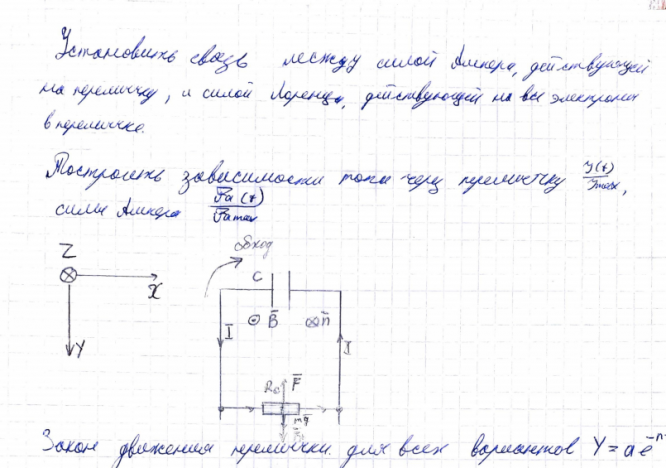 Установить связь между силой Ампера, действующей
на перемычку, и силой Лоренца, действующей на все электроны
в перемычке.
Построить зависимости тока через перемычку J(t)/Jmax,
силы Ампера Fa(t)/Famax
обход
Z
C
X
B n
I J
Y
R F
mg
Закон движения перемычки для всех вариантов Y = a e^-n